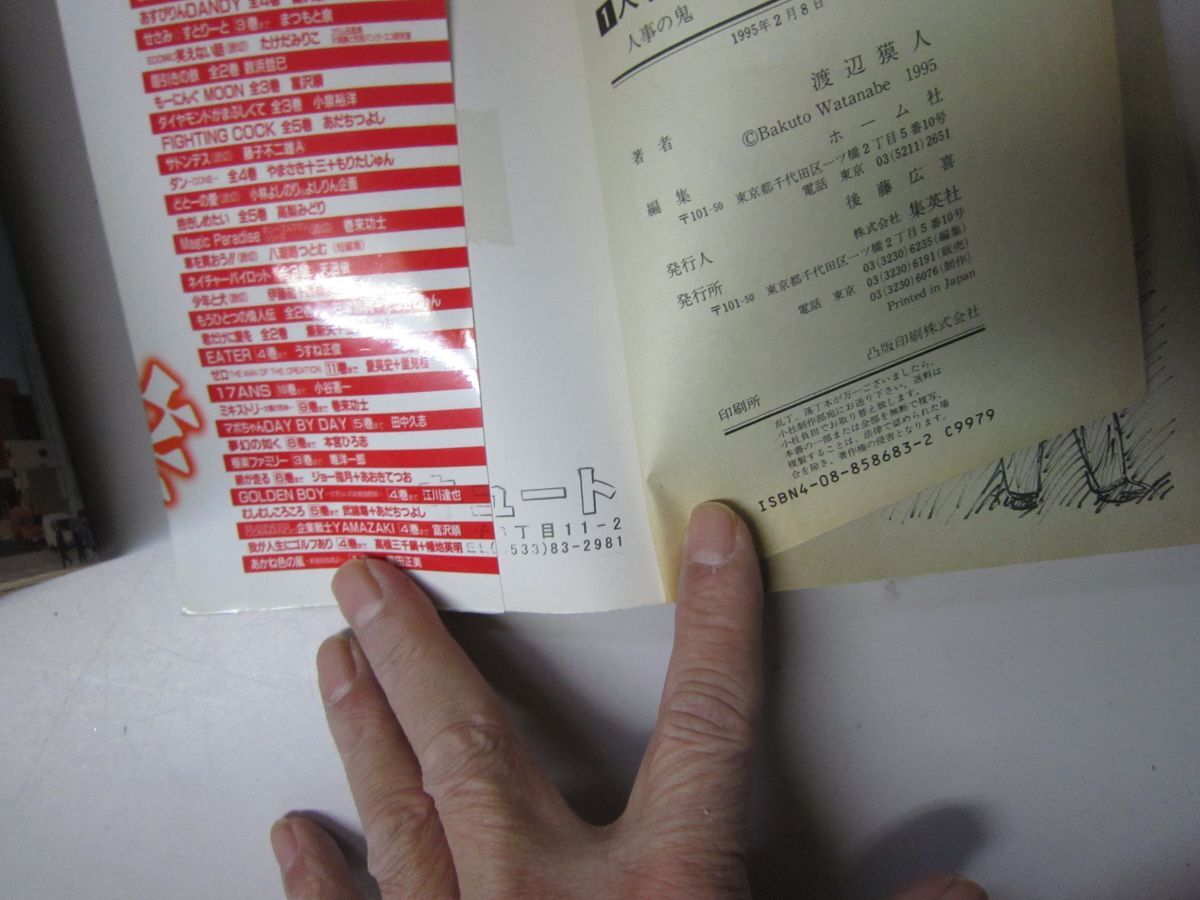 あすぴりんDANDY 全4巻
せさみ☆すとりーと 3巻まで まつもと泉
ECOMIC笑えない話(読切) たけだみりこ
もーにんぐMOON 全3巻 富沢順
ダイヤモンドがまぶしくて 全3巻 小泉裕洋
FIGHTING COCK 全5巻 あだちつよし
サドンデス(読切) 藤子不二雄Ⓐ
全4巻 やまさき十三+もりたじゅん
小林よしのり&よしりん企画
抱きしめたい 全5巻 高梨みどり
Magic Paradise 巻来功士
家を買おう!!(読切) 八潮路つとむ(短編集)
ネイチャーパイロット
少年と犬(読切)
もうひとつの偉人伝 全2巻
君だけに愛を 全2巻
EATER 4巻まで うすね正俊
ゼロ THE MAN OF THE CREATION 11巻まで 愛英史+里見桂
17ANS 10巻まで 小谷憲一
ミキストリ 9巻まで 巻来功士
マポちゃんDAY BY DAY 5巻まで 田中久志
夢幻の如く 8巻まで 本宮ひろ志
極楽ファミリー 3巻まで
紙が走る 6巻まで ジョー指月+あおきてつお
GOLDEN BOY 4巻まで 江川達也
むしむしころころ 5巻まで 武論尊+あだちつよし
企業戦士YAMAZAKI 4巻まで 富沢順
我が人生にゴルフあり 4巻まで 高橋三千綱+幡地英明
あかね色の風
ュート
丁目11-2
533)83-2981
1
人事の鬼
1995年2月8日
著者 渡辺獏人
©Bakuto Watanabe 1995
編集 ホーム社
〒101-50 東京都千代田区一ツ橋2丁目5番10号
電話 東京 03(5211)2651
発行人 後藤広喜
発行所 株式会社 集英社
〒101-50 東京都千代田区一ツ橋2丁目5番10号
電話 東京 03(3230)6235(編集)
03(3230)6191(販売)
03(3230)6076(制作)
Printed in Japan
印刷所 凸版印刷株式会社
乱丁、落丁本が万一ございましたら、
小社制作部宛にお送り下さい。送料は
小社負担でお取り替え致します。
本書の一部または全部を無断で複写、
複製することは、法律で認められた場
合を除き、著作権の侵害となります。
ISBN4-08-858683-2 C9979